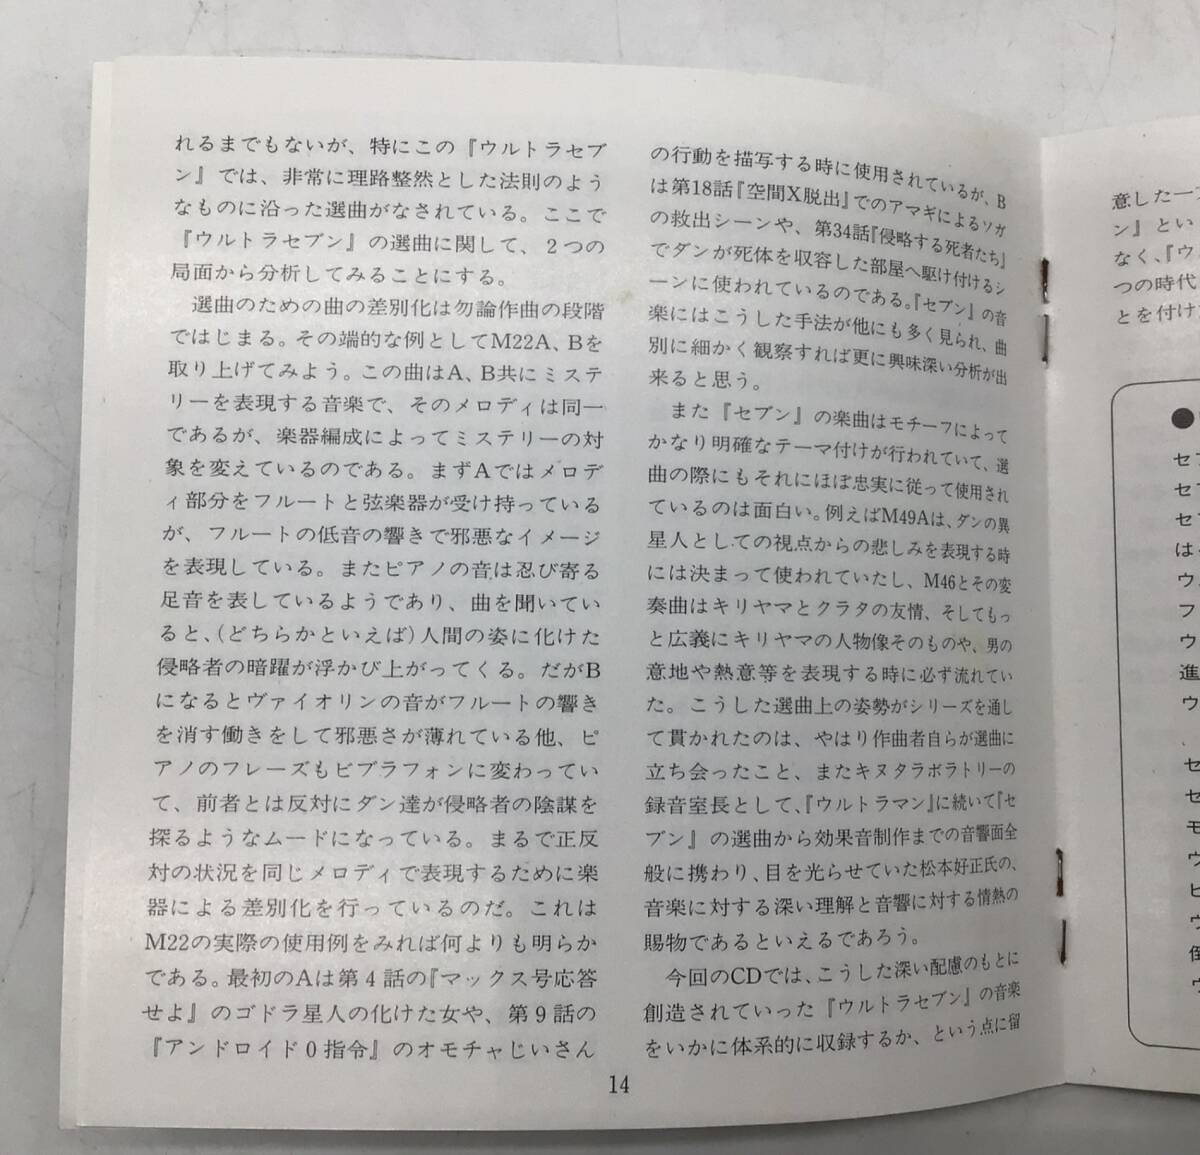 れるまでもないが、特にこの『ウルトラセブ
ン』では、非常に理路整然とした法則のよう
なものに沿った選曲がなされている。ここで
『ウルトラセブン』の選曲に関して、２つの
局面から分析してみることにする。
選曲のための曲の差別化は勿論作曲の段階
ではじまる。その端的な例としてM22A、Bを
取り上げてみよう。この曲はA、B共にミステ
リーを表現する音楽で、そのメロディは同一
であるが、楽器編成によってミステリーの対
象を変えているのである。まずAではメロデ
ィ部分をフルートと弦楽器が受け持っている
が、フルートの低音の響きで邪悪なイメージ
を表現している。またピアノの音は忍び寄る
足音を表しているようであり、曲を聞いてい
ると、(どちらかといえば)人間の姿に化けた
侵略者の暗躍が浮かび上がってくる。だがB
になるとヴァイオリンの音がフルートの響き
を消す働きをして邪悪さが薄れている他、ピ
アノのフレーズもビブラフォンに変わってい
て、前者とは反対にダン達が侵略者の陰謀を
探るようなムードになっている。まるで正反
対の状況を同じメロディで表現するために楽
器による差別化を行っているのだ。これは
M22の実際の使用例をみれば何よりも明らか
である。最初のAは第４話の『マックス号応答
せよ』のゴドラ星人の化けた女や、第９話の
『アンドロイド０指令』のオモチャじいさん
の行動を描写する時に使用されているが、B
は第18話『空間X脱出』でのアマギによるソガ
の救出シーンや、第34話『侵略する死者たち』
でダンが死体を収容した部屋へ駆け付けるシ
ーンに使われているのである。『セブン』の音
楽にはこうした手法が他にも多く見られ、曲
別に細かく観察すれば更に興味深い分析が出
来ると思う。
また『セブン』の楽曲はモチーフによって
かなり明確なテーマ付けが行われていて、選
曲の際にもそれにほぼ忠実に従って使用され
ているのは面白い。例えばM49Aは、ダンの異
星人としての視点からの悲しみを表現する時
には決まって使われていたし、M46とその変
奏曲はキリヤマとクラタの友情、そしてもっ
と広義にキリヤマの人物像そのものや、男の
意地や熱意等を表現する時に必ず流れてい
た。こうした選曲上の姿勢がシリーズを通し
て貫かれたのは、やはり作曲者自らが選曲に
立ち会ったこと、またキヌタラボラトリーの
録音室長として、『ウルトラマン』に続いて『セ
ブン』の選曲から効果音制作までの音響面全
般に携わり、目を光らせていた松本好正氏の、
音楽に対する深い理解と音響に対する情熱の
賜物であるといえるであろう。
今回のCDでは、こうした深い配慮のもとに
創造されていった『ウルトラセブン』の音楽
をいかに体系的に収録するか、という点に留
14
意した一
ン』とい
なく、『ウ
つの時代
とを付け
●
セ
セ
セ
は
ウ
フ
ウ
進
ウ
セ
セ
モ
ウ
ヒ
ウ
倒
ウ